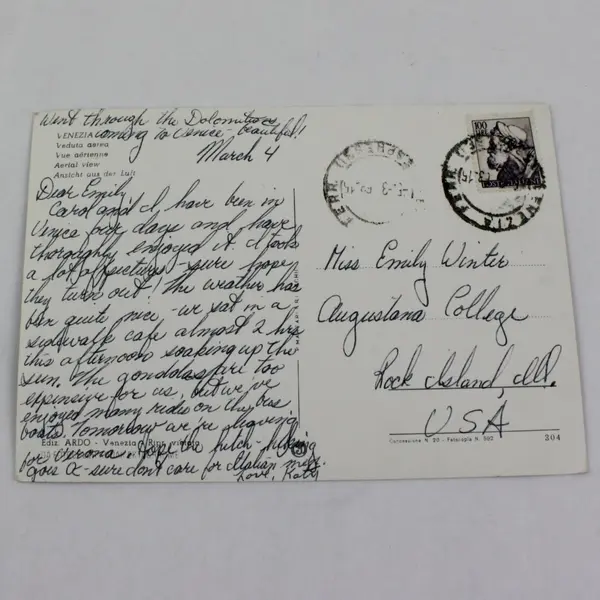 Went through the Dolomites
coming to Venice - beautiful!
March 4
VENEZIA
Veduta aerea
Vue aérienne
Aerial view
Ansicht aus der Luft
Dear Emily
Carol and I have been in
Venice four days and have
thoroughly enjoyed it. I took
a lot of pictures - sure hope
they turn out! The weather has
been quite nice - we sat in a
sidewalk cafe almost 2 hrs
this afternoon soaking up the
sun. The gondolas are too
expensive for us, but we've
enjoyed many rides on the bus
boats. Tomorrow we're leaving
for Verona. Hope the hitch-hiking
goes OK - sure don't care for Italian men.
Love, Katy
Ediz. ARDO - Venezia - Rip. vietata
100
VENEZIA FERR
FERR
Miss Emily Winter
Augustana College
Rock Island, Ill.
USA
Concessione N. 20 - Fotocopie N. 500
204